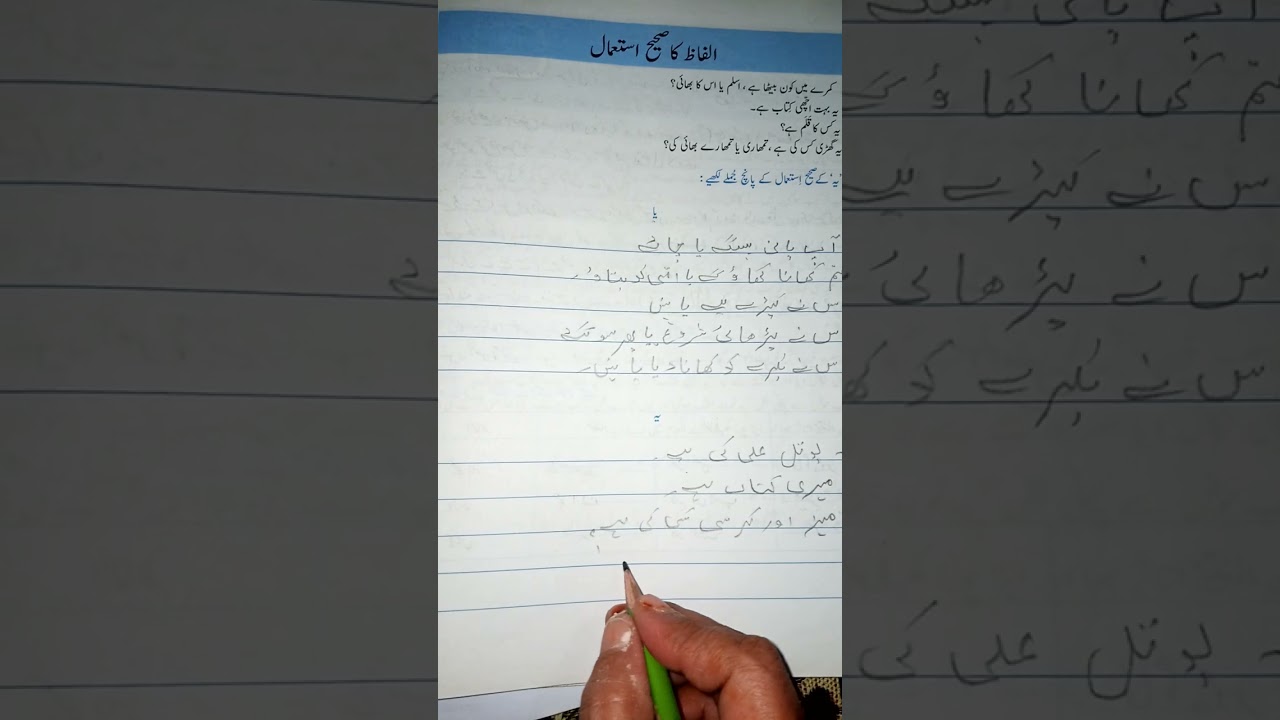 الفاظ کا صحیح استعمال
کمرے میں کون بیٹھا ہے، اسلم یا اس کا بھائی؟
یہ بہت اچھی کتاب ہے۔
یہ کس کا قلم ہے؟
یہ گھڑی کس کی ہے، تمھاری یا تمھارے بھائی کی؟
'یہ' کے صحیح استعمال کے پانچ جملے لکھیے:
یا
آپ پانی یا چائے
تم کھانا کھاؤ گے یا امی کو بتا دوں
س نے کپڑے لیے یا
س نے پڑھائی شروع یا پھر سو گئے
س نے بکرے کو کھانا دیا یا
یہ
بوتل علی کی ہے۔
میری کتاب ہے۔
میز اور کرسی کی ہے؟